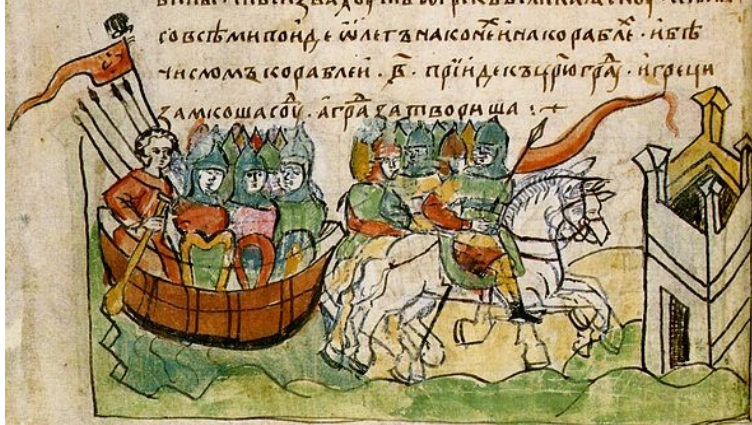 со всѣми поиде ѡлегъ на конеⷯ и на кораблеⷯ . и бѣ
числомъ кораблеи . в҃ . прїиде къ цр҃юграⷣ . и греци
замкоша соуⷣ . а граⷣ затвориша :+